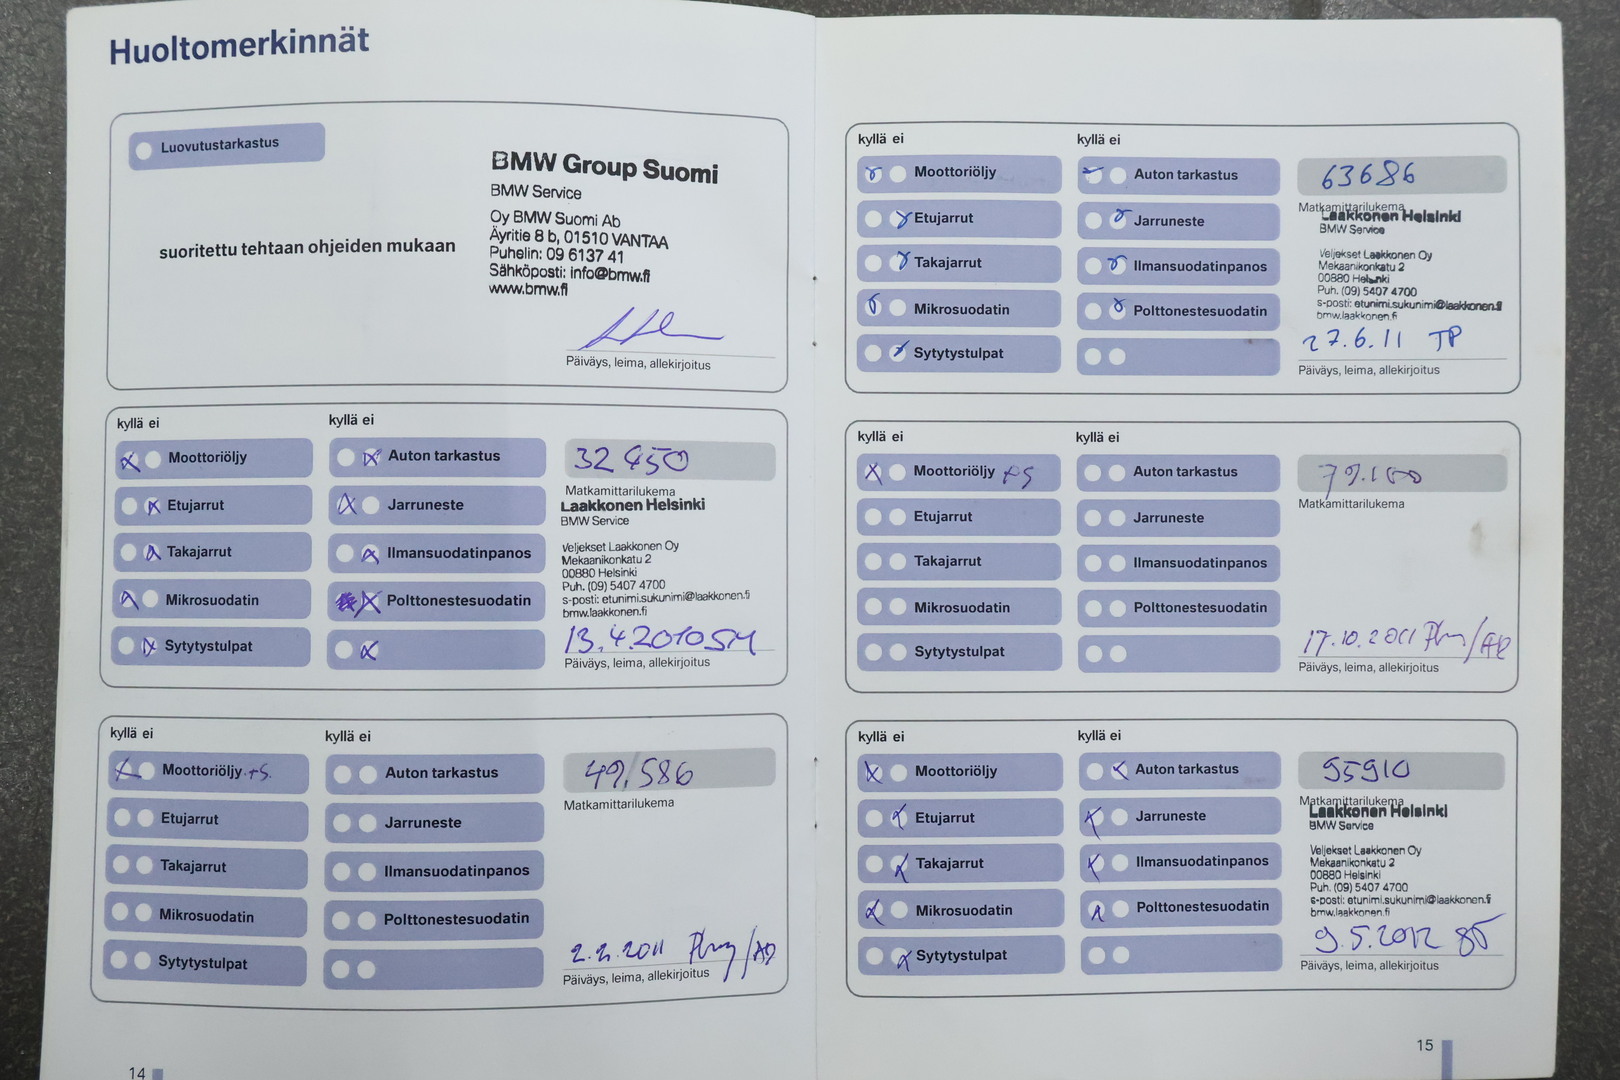 Huoltomerkinnät
Luovutustarkastus
suoritettu tehtaan ohjeiden mukaan
BMW Group Suomi
BMW Service
Oy BMW Suomi Ab
Äyritie 8 b, 01510 VANTAA
Puhelin: 09 6137 41
Sähköposti: info@bmw.fi
www.bmw.fi
Päiväys, leima, allekirjoitus
kyllä ei
kyllä ei
Moottoriöljy
Auton tarkastus
Etujarrut
Jarruneste
Takajarrut
Ilmansuodatinpanos
Mikrosuodatin
Polttonestesuodatin
Sytytystulpat
32 450
Matkamittarilukema
Laakkonen Helsinki
BMW Service
Veljekset Laakkonen Oy
Mekaanikonkatu 2
00880 Helsinki
Puh. (09) 5407 4700
s-posti: etunimi.sukunimi@laakkonen.fi
bmw.laakkonen.fi
13.4.2010 SM
Päiväys, leima, allekirjoitus
kyllä ei
kyllä ei
Moottoriöljy +S.
Auton tarkastus
Etujarrut
Jarruneste
Takajarrut
Ilmansuodatinpanos
Mikrosuodatin
Polttonestesuodatin
Sytytystulpat
49.586
Matkamittarilukema
2.2.2011
Päiväys, leima, allekirjoitus
14
kyllä ei
kyllä ei
Moottoriöljy
Auton tarkastus
Etujarrut
Jarruneste
Takajarrut
Ilmansuodatinpanos
Mikrosuodatin
Polttonestesuodatin
Sytytystulpat
63686
Matkamittarilukema
Laakkonen Helsinki
BMW Service
Veljekset Laakkonen Oy
Mekaanikonkatu 2
00880 Helsinki
Puh. (09) 5407 4700
s-posti: etunimi.sukunimi@laakkonen.fi
bmw.laakkonen.fi
27.6.11 TP
Päiväys, leima, allekirjoitus
kyllä ei
kyllä ei
Moottoriöljy +S
Auton tarkastus
Etujarrut
Jarruneste
Takajarrut
Ilmansuodatinpanos
Mikrosuodatin
Polttonestesuodatin
Sytytystulpat
Matkamittarilukema
17.10.2011
Päiväys, leima, allekirjoitus
kyllä ei
kyllä ei
Moottoriöljy
Auton tarkastus
Etujarrut
Jarruneste
Takajarrut
Ilmansuodatinpanos
Mikrosuodatin
Polttonestesuodatin
Sytytystulpat
95910
Matkamittarilukema
Laakkonen Helsinki
BMW Service
Veljekset Laakkonen Oy
Mekaanikonkatu 2
00880 Helsinki
Puh. (09) 5407 4700
s-posti: etunimi.sukunimi@laakkonen.fi
bmw.laakkonen.fi
9.5.2012
Päiväys, leima, allekirjoitus
15